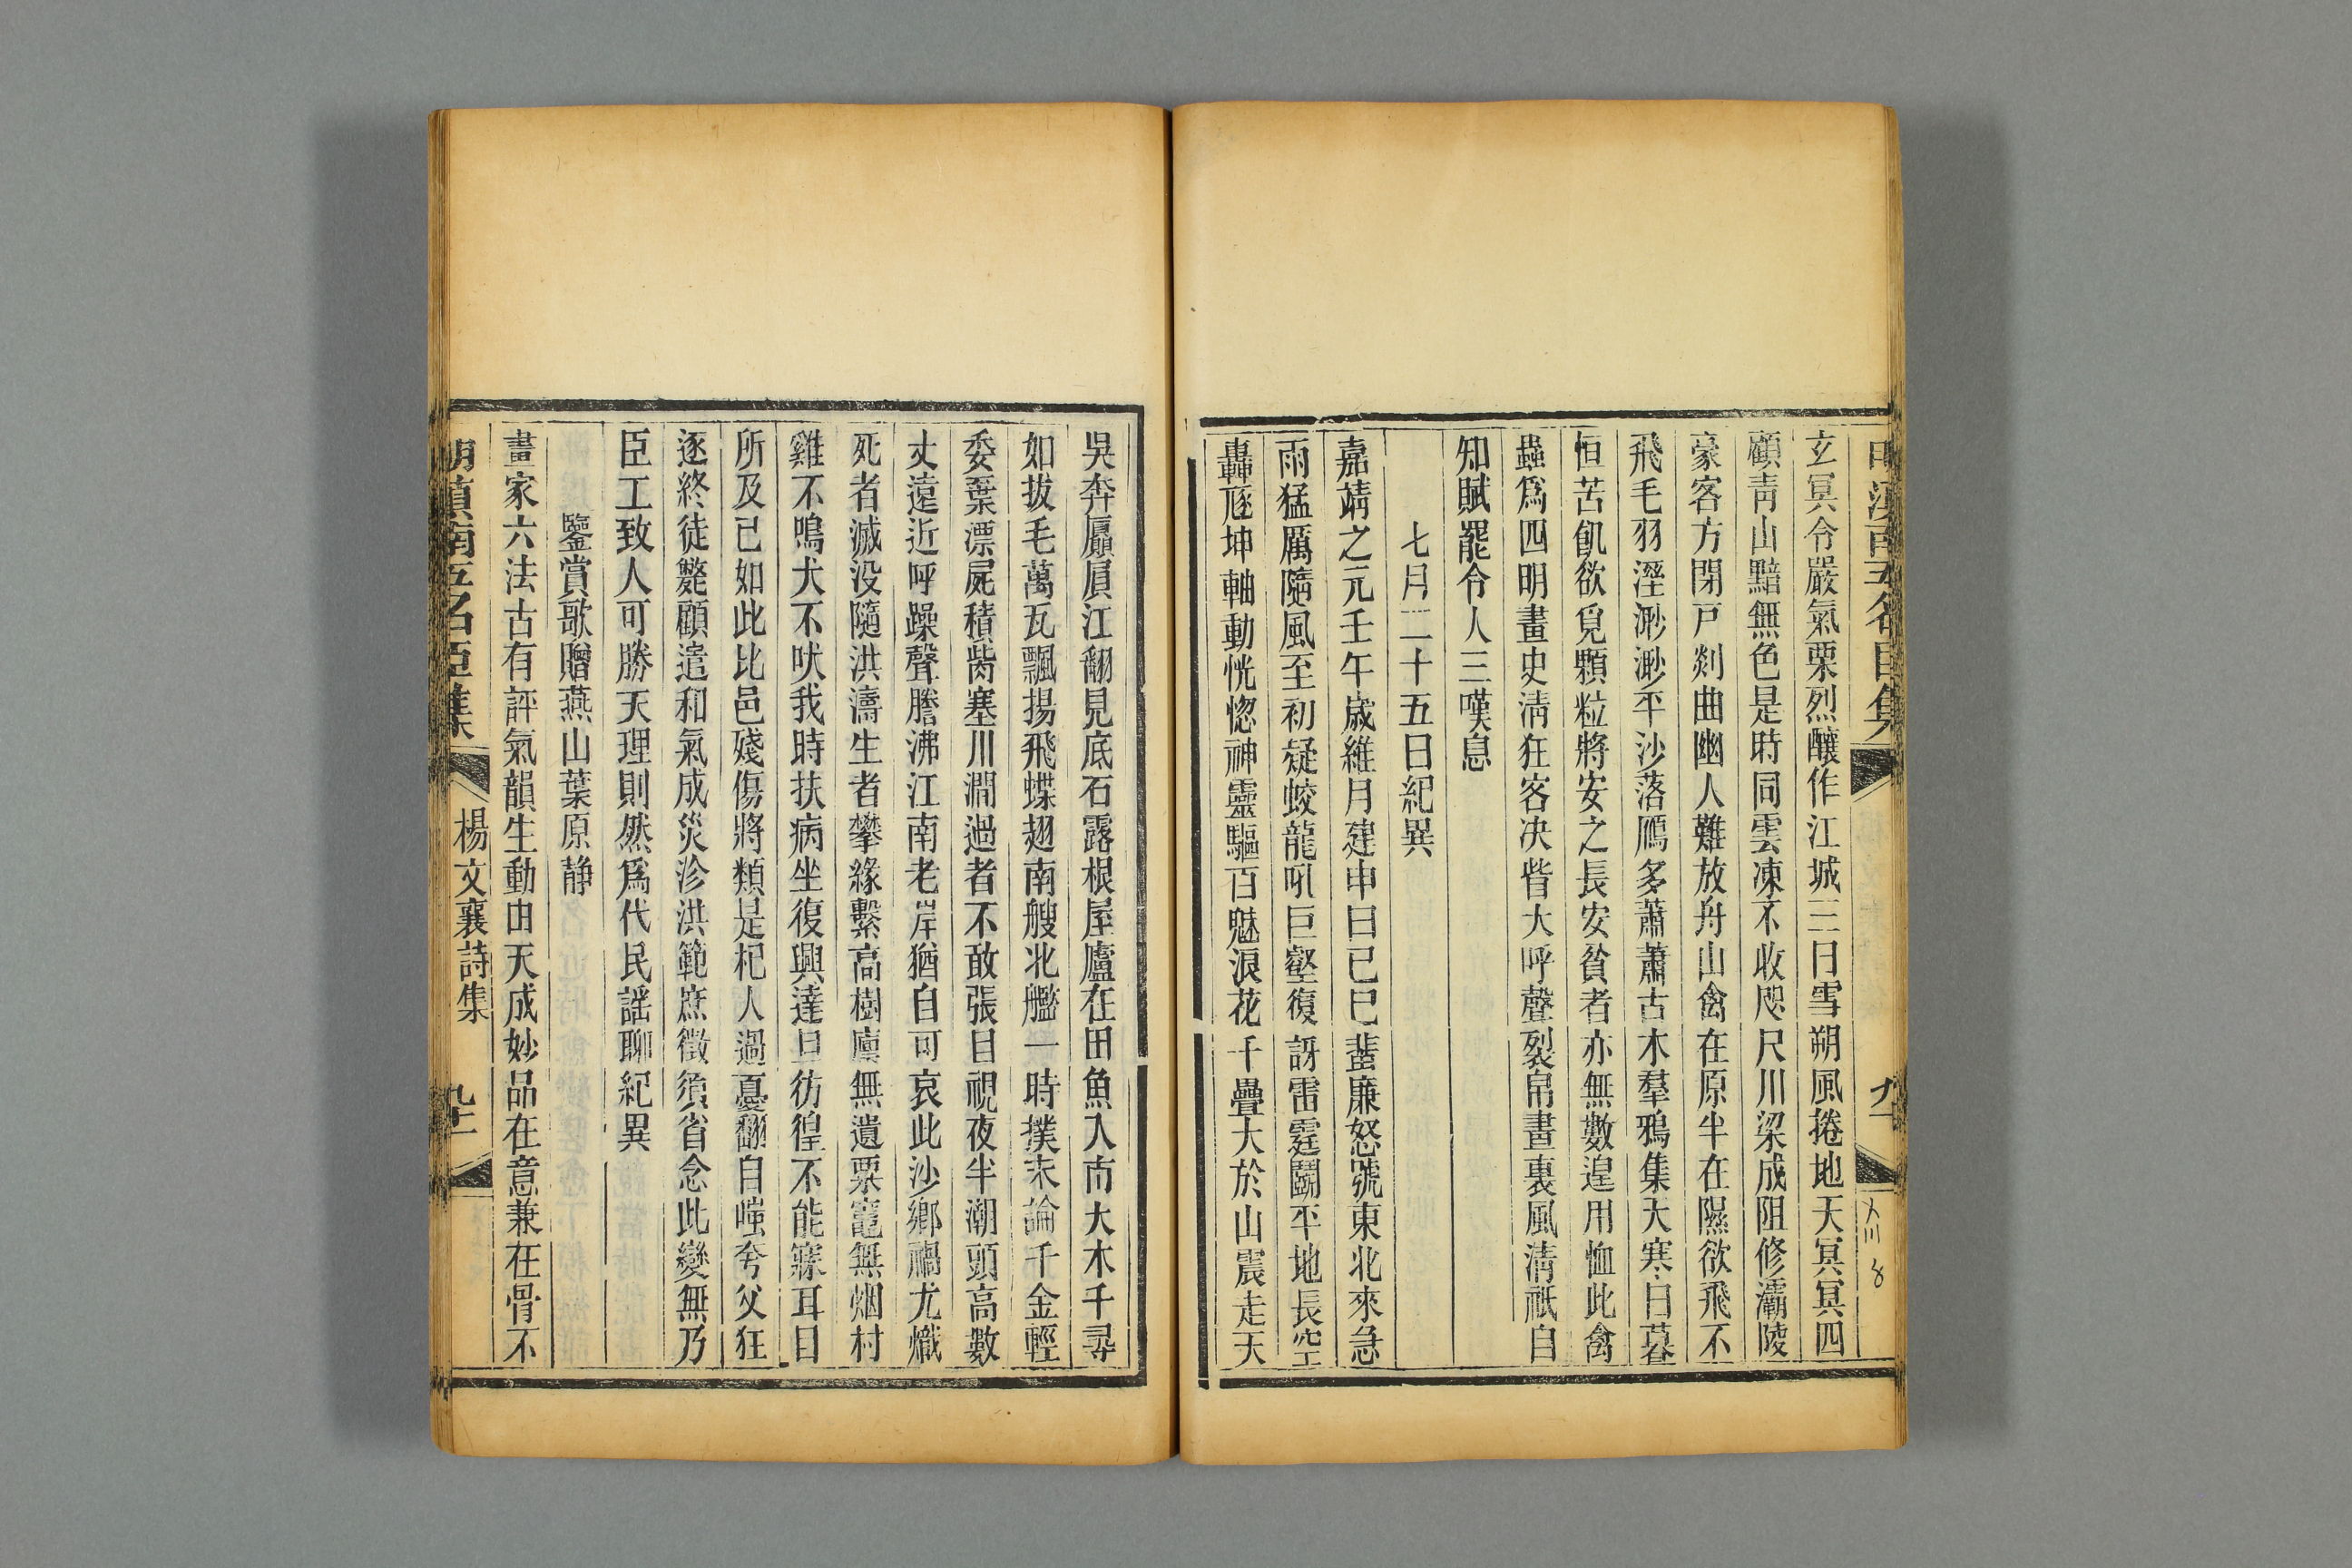 玄冥令嚴氣栗烈釀作江城三日雪朔風捲地天冥冥四
顧青山黯無色是時同雲凍不收咫尺川梁成阻修灞陵
豪客方閉戸剡曲幽人難放舟山禽在原半在隰欲飛不
飛毛羽溼渺渺平沙落鴈多蕭蕭古木羣鴉集天寒日暮
恒苦飢欲覓顆粒將安之長安貧者亦無數遑用恤此禽
蟲爲四明畫史清狂客決眥大呼聲裂帛畫裏風清祇自
知賦罷令人三嘆息
七月二十五日紀異
嘉靖之元壬午歲維月建申日己巳蜚廉怒號東北來急
雨猛厲隨風至初疑蛟龍吼巨壑復訝雷霆鬬平地長空
轟豗坤軸動恍惚神靈驅百魅浪花千疊大於山震走天
吳奔屭屓江翻見底石露根屋廬在田魚入市大木千尋
如拔毛萬瓦飄揚飛蝶翅南艘北艦一時撲未論千金輕
委棄漂屍積胔塞川澗過者不敢張目視夜半潮頭高數
丈遠近呼躁聲騰沸江南老岸猶自可哀此沙鄉禍尤熾
死者滅没隨洪濤生者攀緣繫高樹廩無遺粟竈無烟村
雞不鳴犬不吠我時扶病坐復興達旦彷徨不能寐耳目
所及已如此比邑殘傷將類是杞人過憂翻自嗤夸父狂
逐終徒斃顧遣和氣成災沴洪範庶徵須省念此變無乃
臣工致人可勝天理則然爲代民謡聊紀異
鑒賞歌贈燕山葉原靜
畫家六法古有評氣韻生動由天成妙品在意兼在骨不
明滇南五名臣集
楊文襄詩集